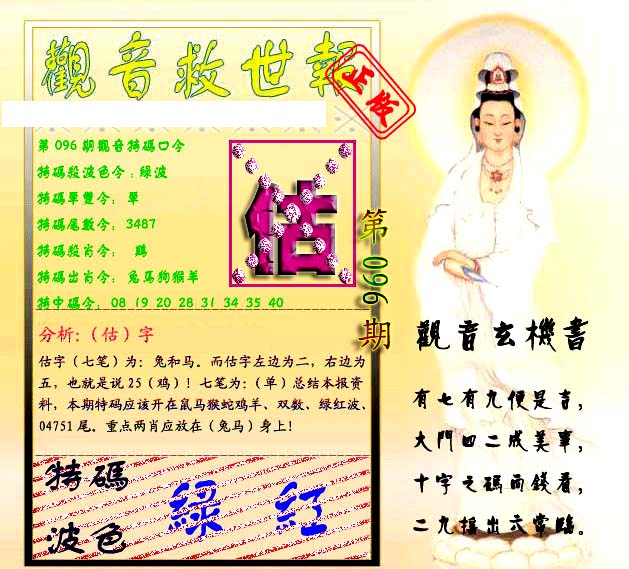 觀音救世報
正版
第096期觀音特碼口令
特碼殺波色令:綠波
特碼單雙令: 單
特碼尾數令: 3487
特碼殺肖令: 鷄
特碼出肖令: 兔馬狗猴羊
特中碼令: 08 19 20 28 31 34 35 40
估
第096期
分析:（估）字
估字（七笔）为：兔和马。而估字左边为二，右边为
五，也就是说25（鸡）！七笔为：（单）总结本报资
料，本期特码应该开在鼠马猴蛇鸡羊、双数、绿红波、
04751尾。重点两肖应放在（兔马）身上！
特碼
波色
綠 紅
觀音玄機書
有七有九便是吉，
大門四二成美事，
十字之碼而錢看，
二九擋出六常臨。